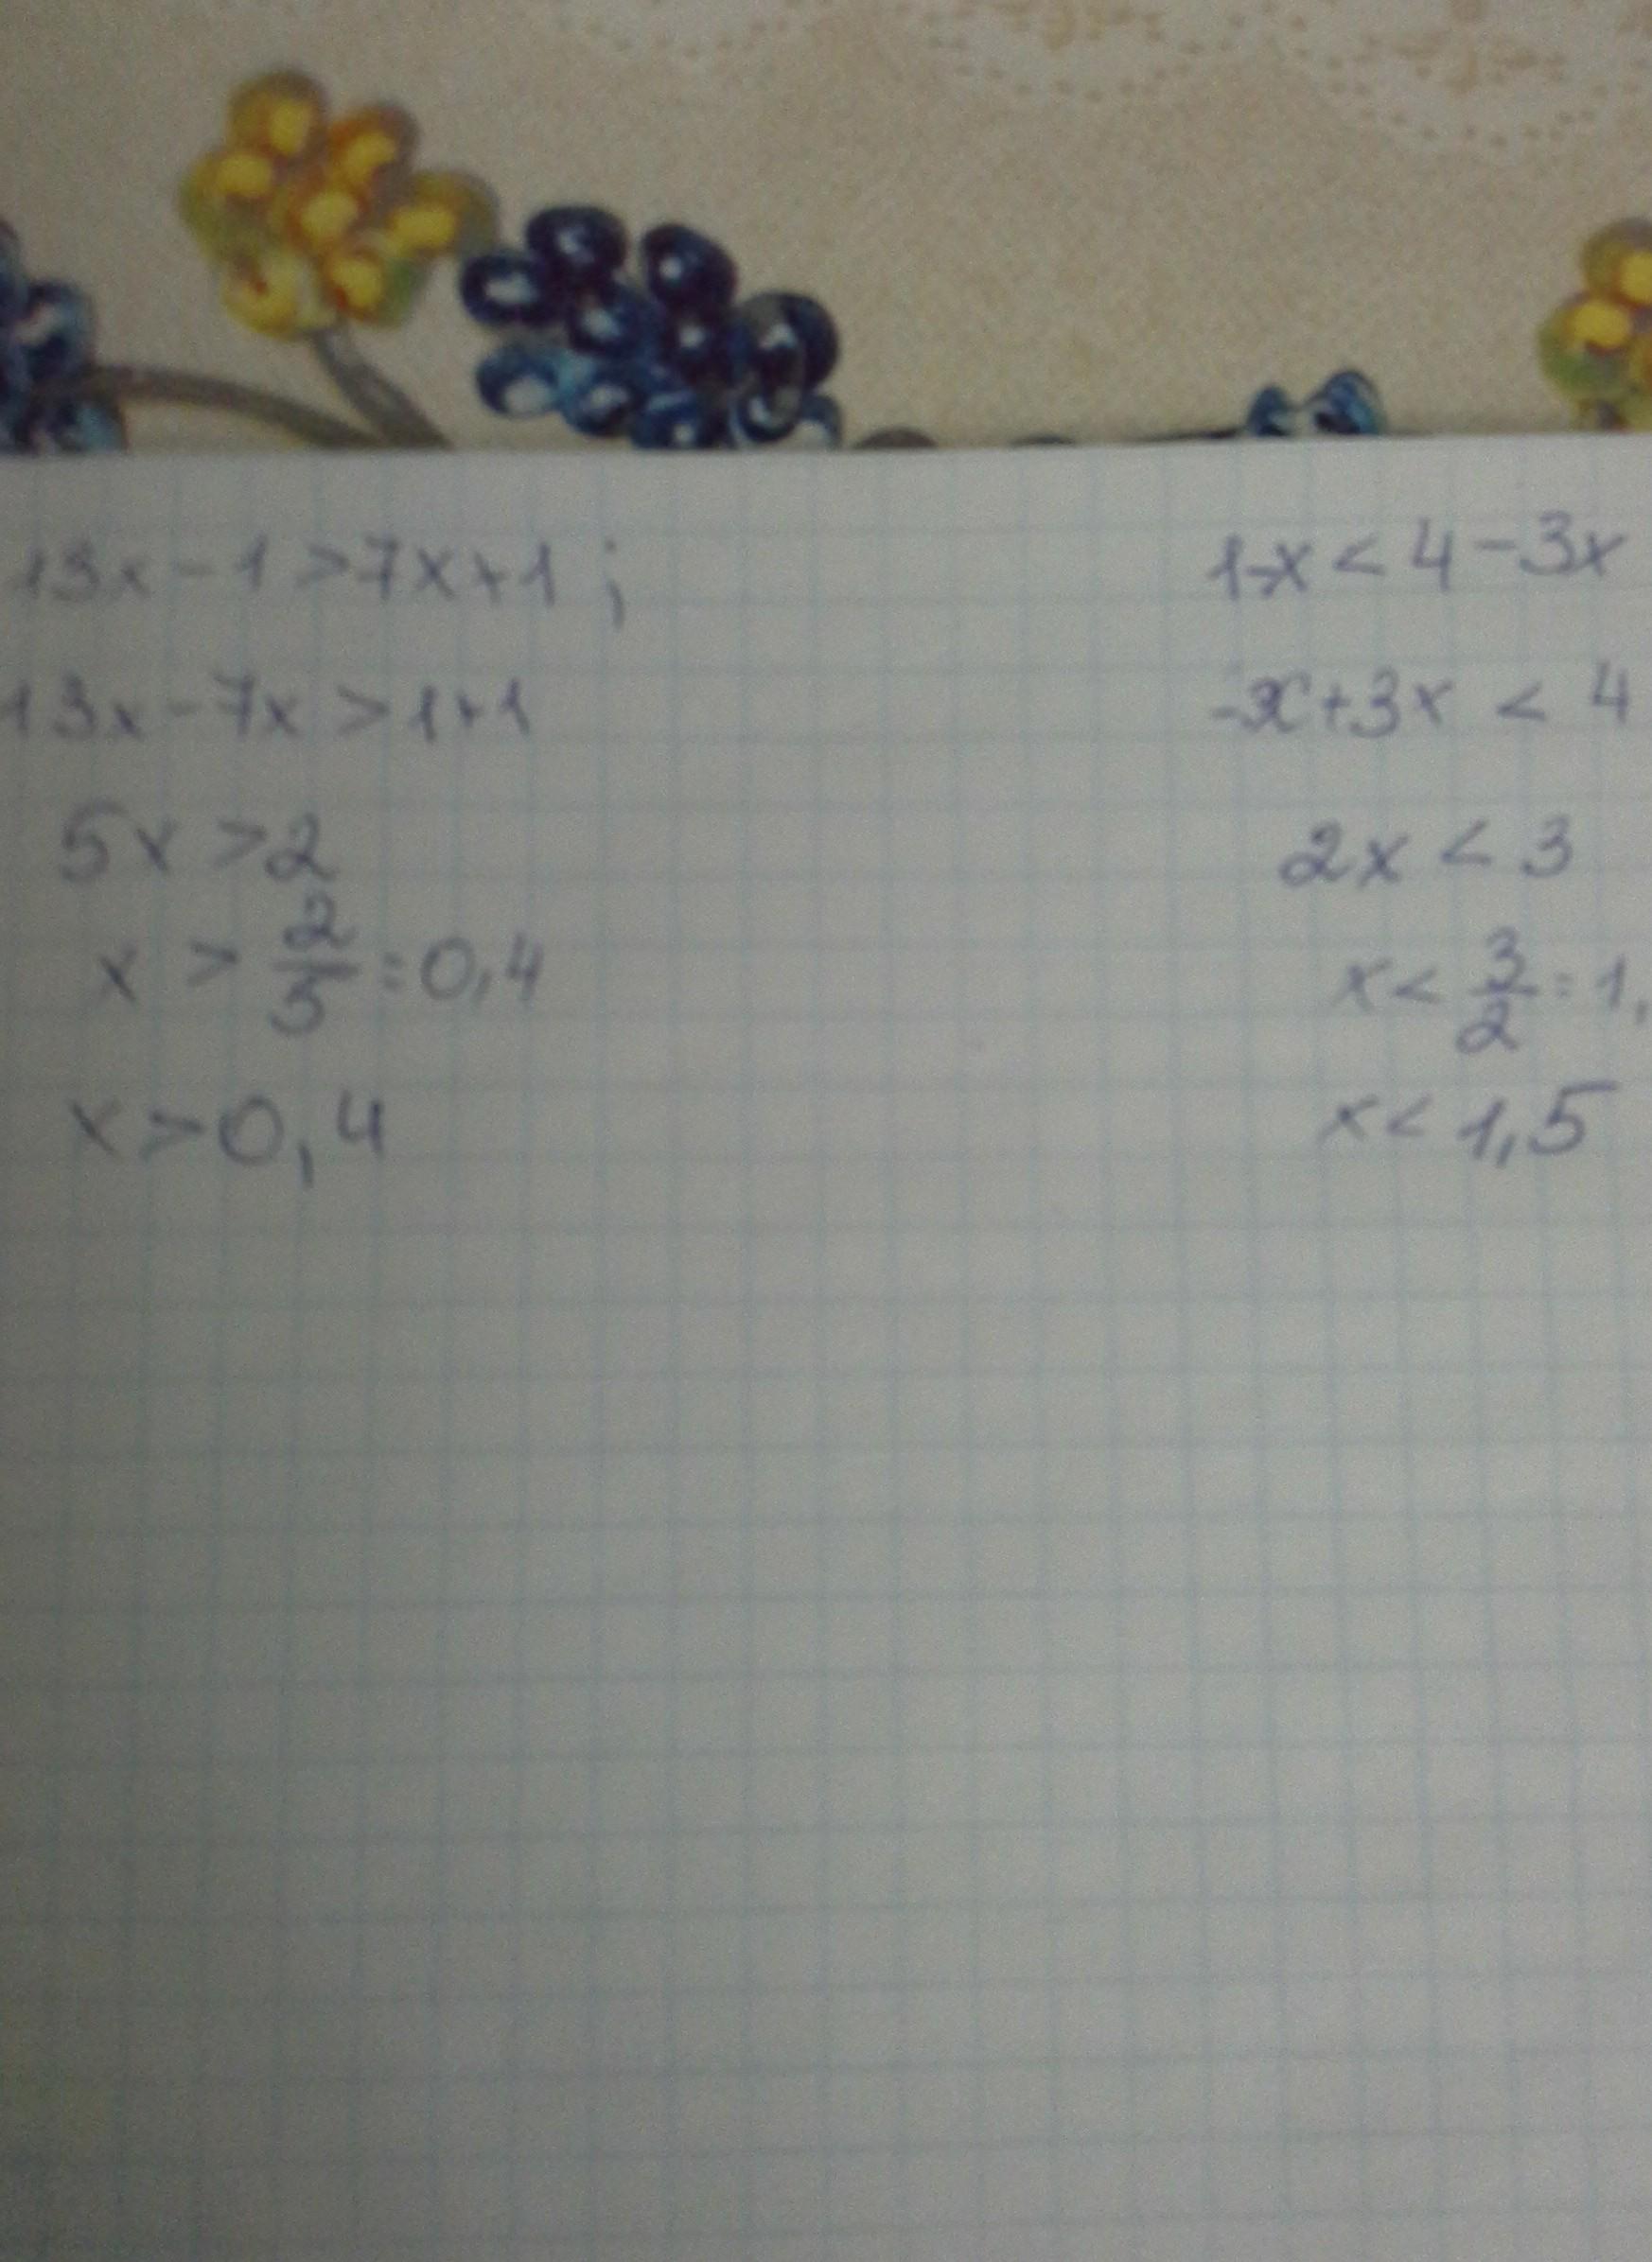 13x-1>7x+1;
13x-7x>1+1
5x>2
x > 2/5 = 0,4
x>0,4
1-x<4-3x
-x+3x < 4
2x < 3
x < 3/2 = 1,
x< 1,5